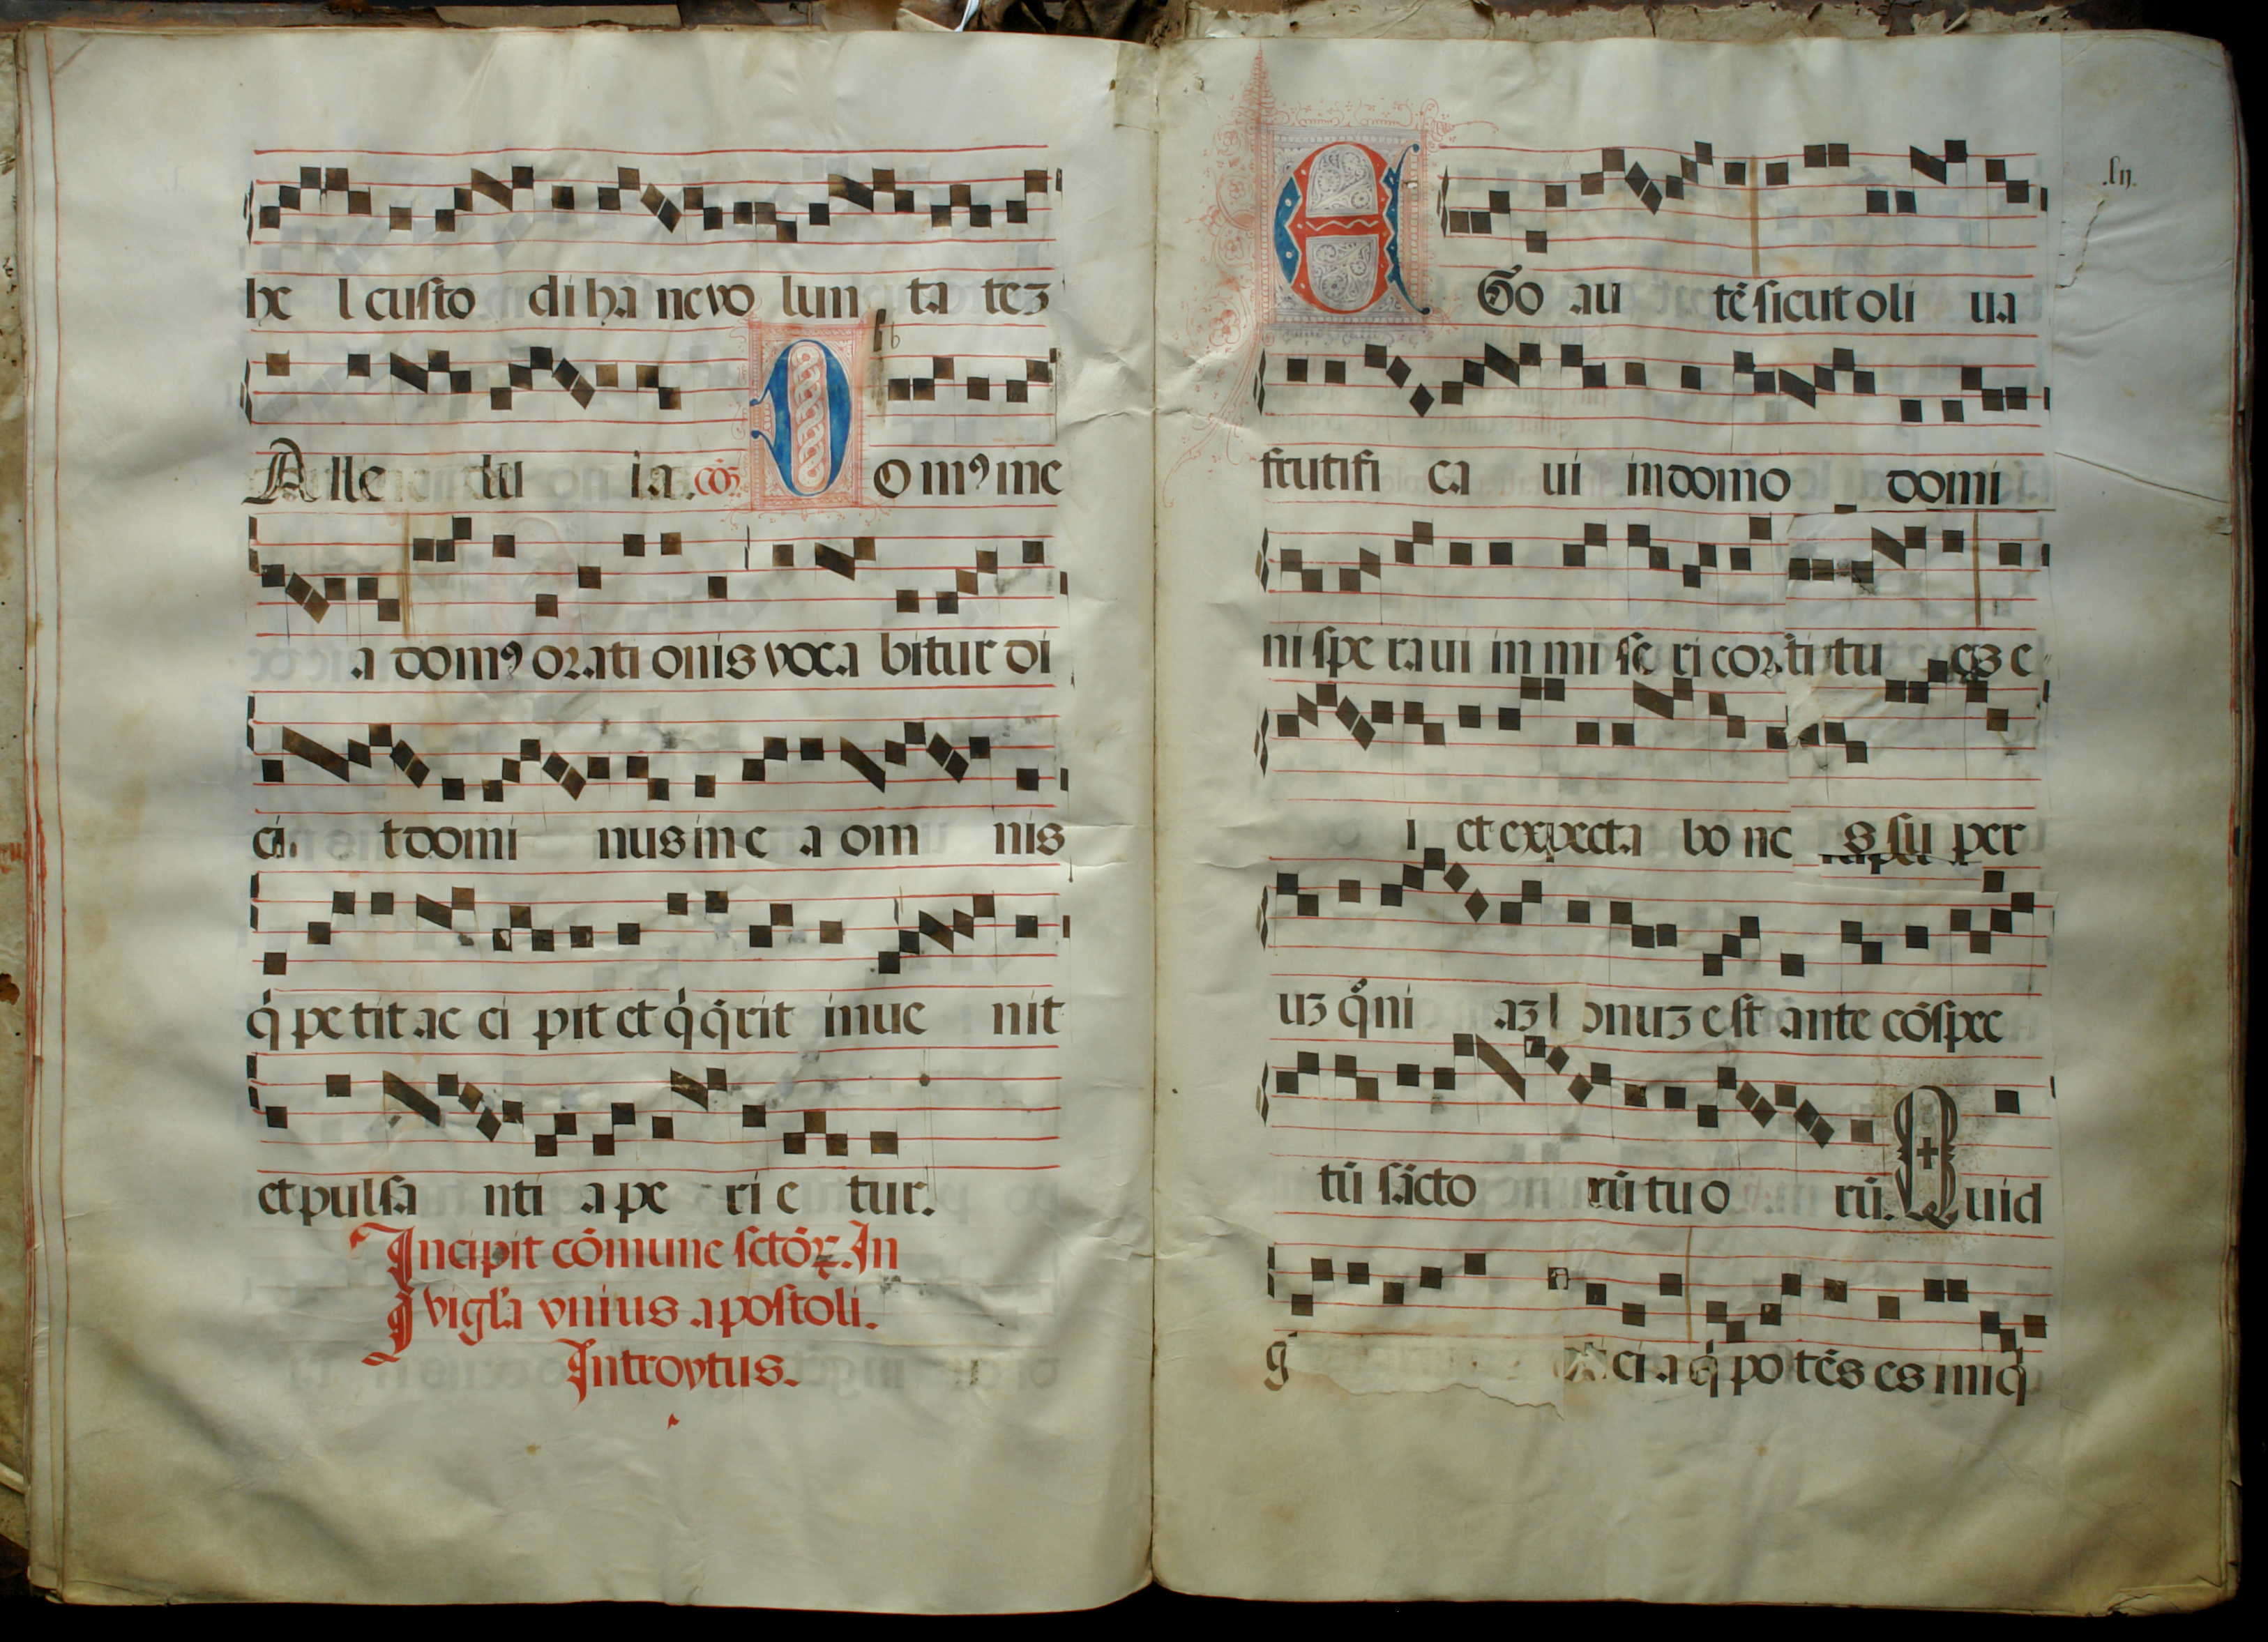 he l custo di ha nc vo lun ta tcʒ
Alle lu ia. cōꝫ D om⁹ mc
a dom⁹ orati onis voca bitur di
ci t domi nus in e a om nis
q̇ pe tit ac ci pit et q̇ q̄rit inue nit
et pulsa nti a pe ri e tur.
Incipit cōmune sctōꝝ. In
vigl'a vnius apostoli.
Introytus.
.lij.
E Go au tē sicut oli ua
fructifi ca ui in domo domi
ni spe raui in mi se ri cor ti tu eꝫ e
i et expecta bo nc s su per
uʒ qº̄ni aʒ onuʒ est ante cōspec
tū sācto rū tu o rū. Quid
g ci a q̇ po tēs es iniq̇